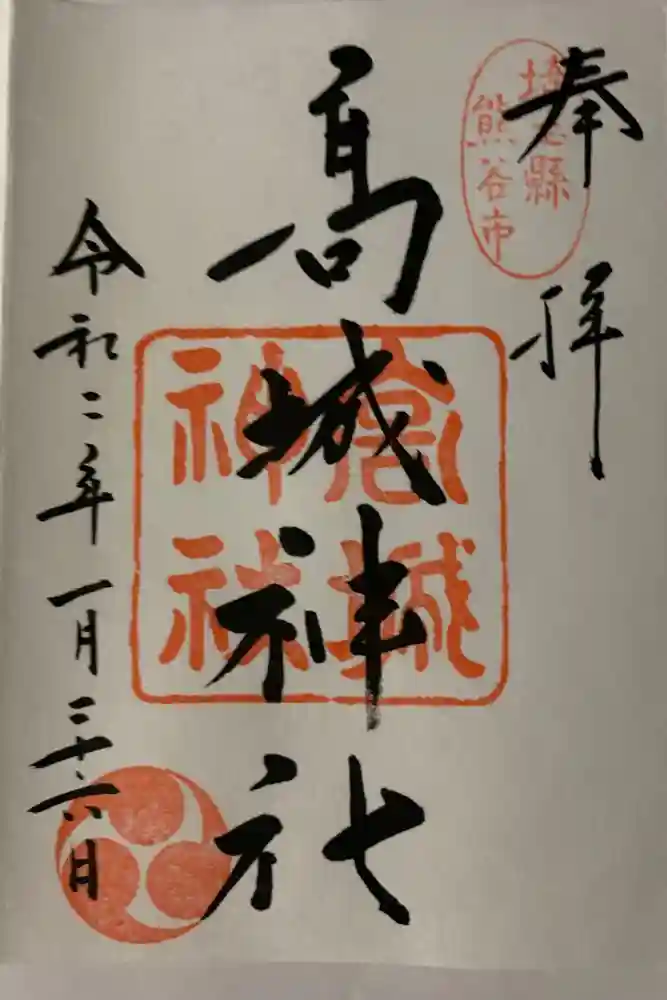 奉拝
埼玉縣
熊谷市
髙城神社
高城
神社
令和二年一月二十六日